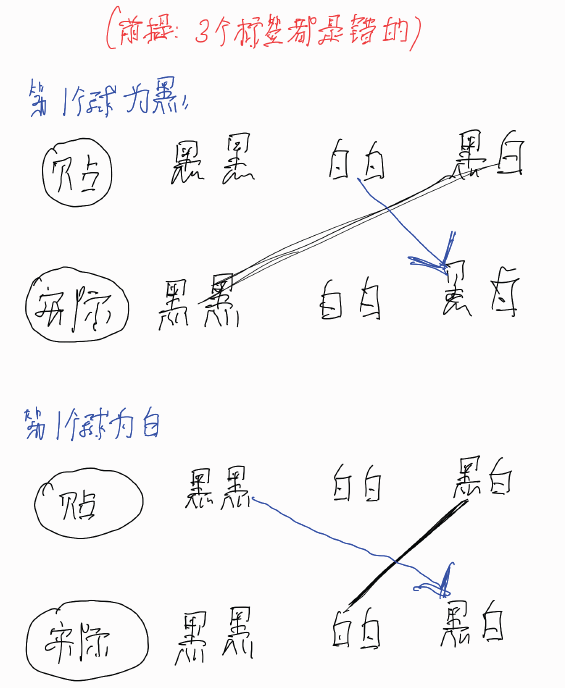 (前提: 3个标签都是错的)
第1个球为黑
贴 黑黑 白白 黑白
实际 黑黑 白白 黑白
第1个球为白
贴 黑黑 白白 黑白
实际 黑黑 白白 黑白